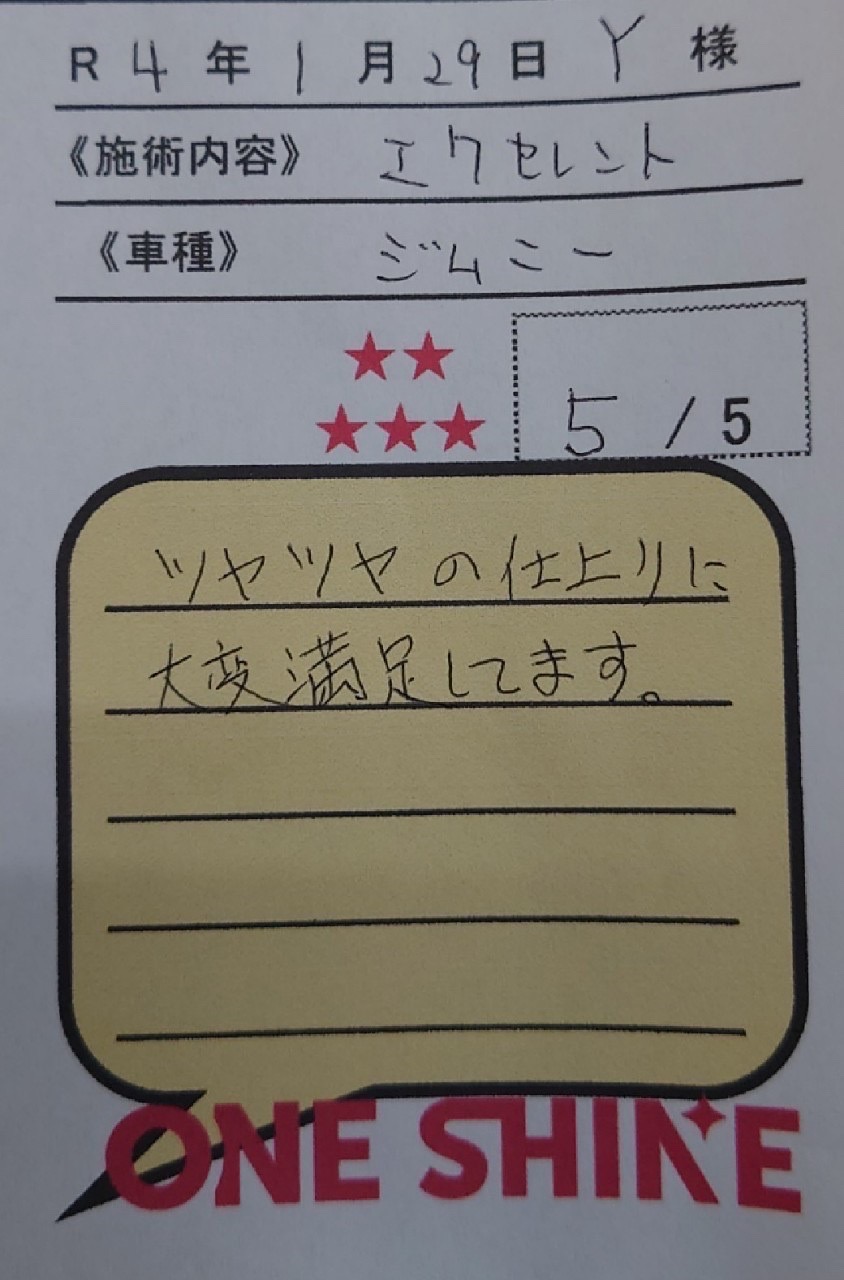 R 4 年 1 月 29 日 Y 様
《施術内容》 エクセレント
《車種》 ジムニー
★★
★★★ 5 / 5
ツヤツヤの仕上りに
大変満足してます。
ONE SHINE